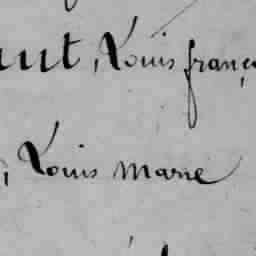 aut, Louis franç
, Louis Marie